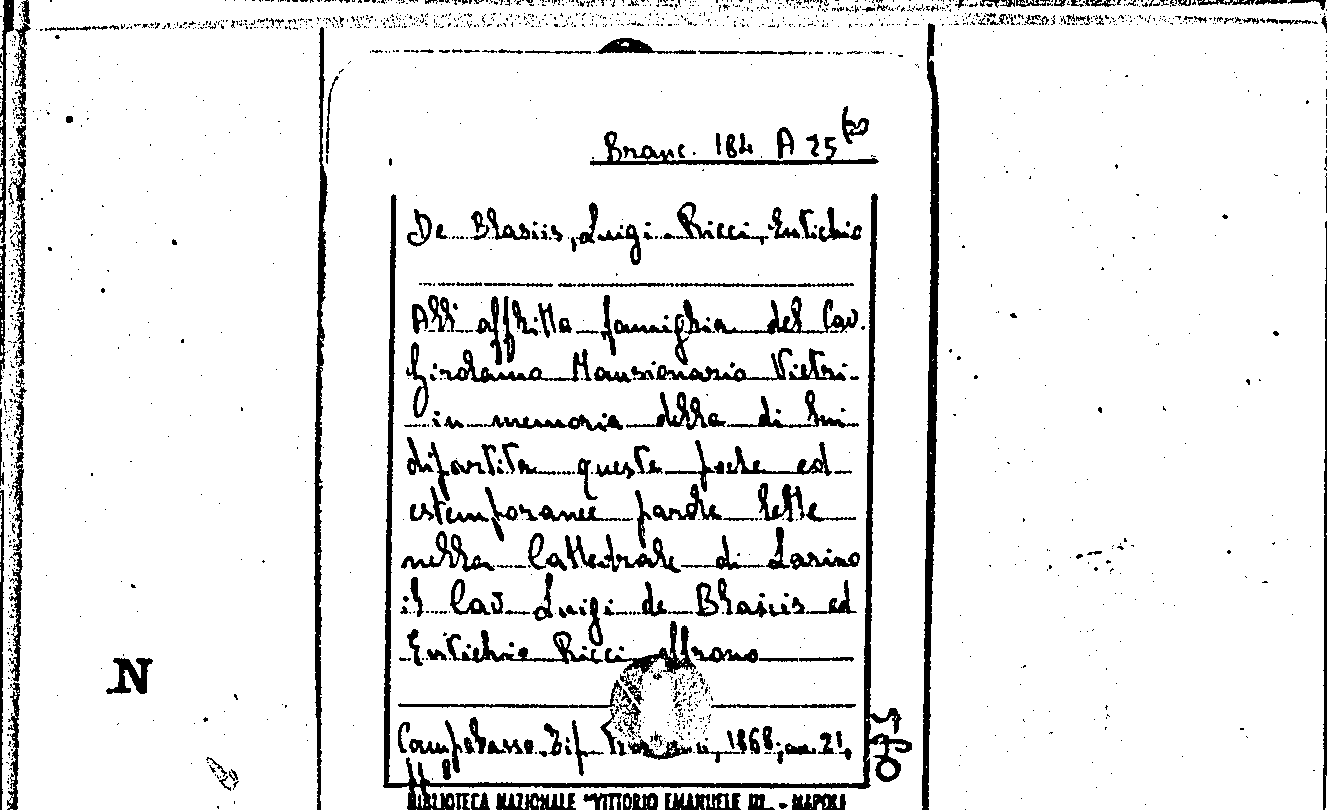 Branc. 184 A 25
De Blasiis, Luigi. Ricci, Eutichio
All' afflitta famiglia del Cav.
Girolamo Mansionario Vietri
in memoria della di lui
dipartita queste poche ed
estemporanee parole lette
nella Cattedrale di Larino
il Cav. Luigi de Blasiis ed
Eutichio Ricci offrono
Campobasso. Tip. 1868; cm. 21,
N
BIBLIOTECA NAZIONALE "VITTORIO EMANUELE III" - NAPOLI